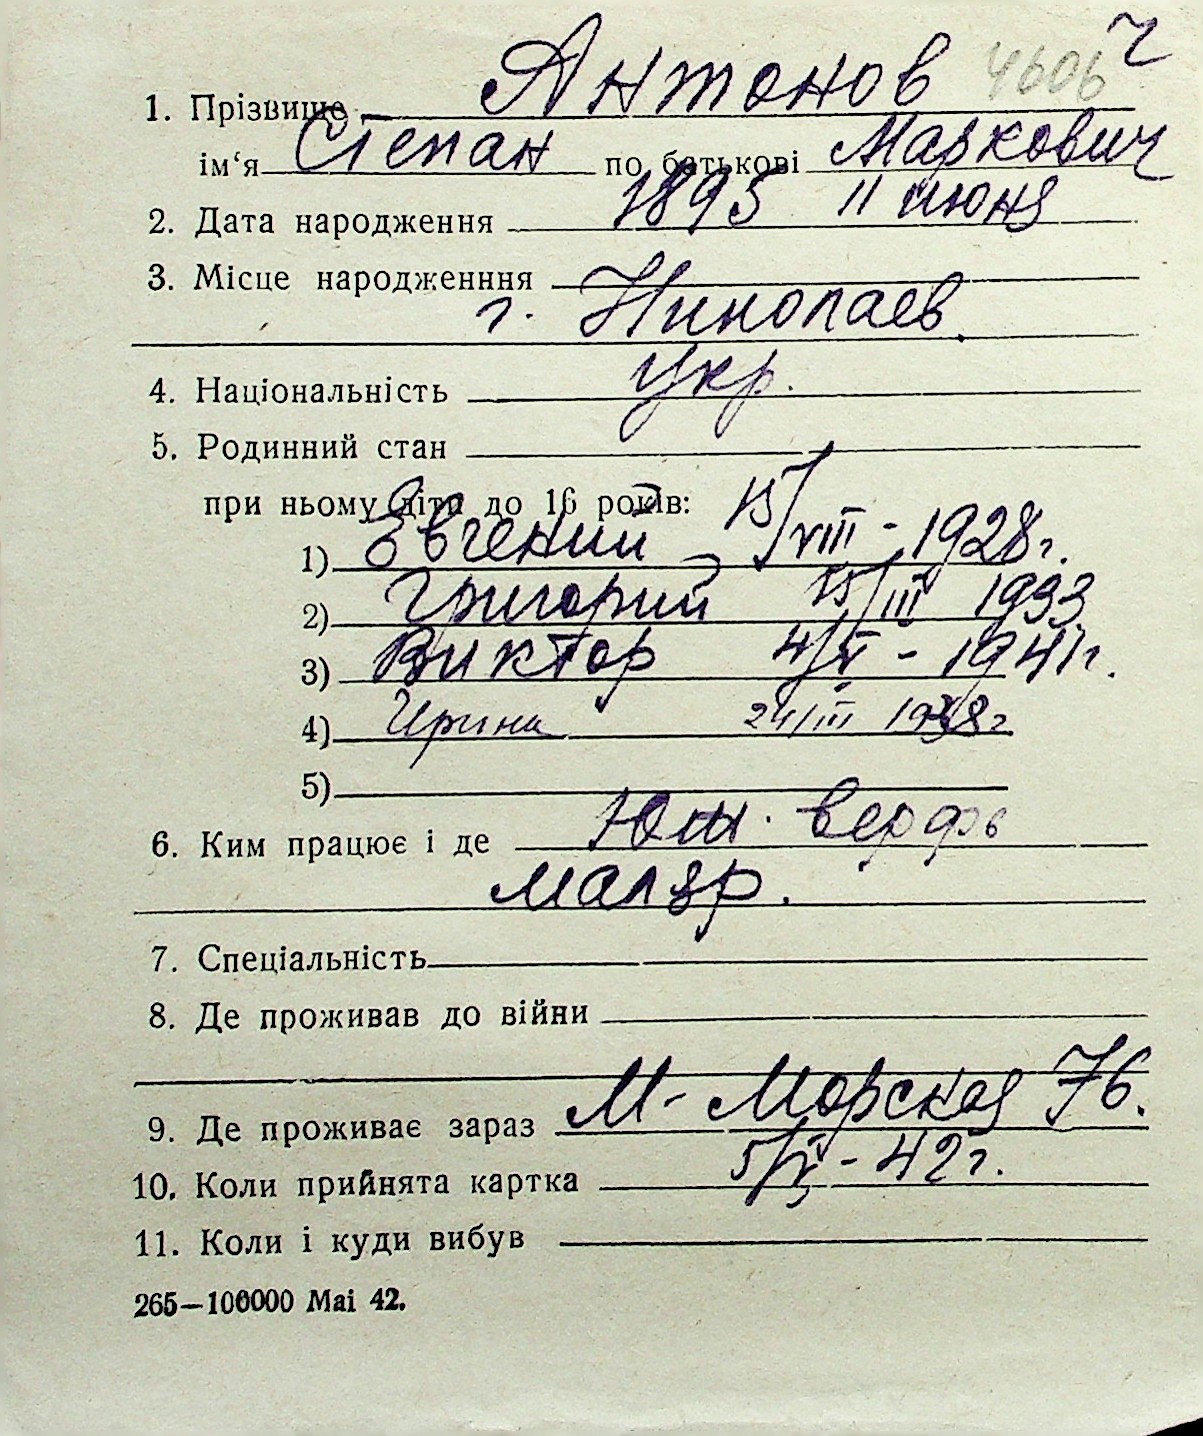 4606 ч
1. Прізвище Антонов
ім‘я Степан по батькові Маркович
2. Дата народження 1895 11 июня
3. Місце народженння
г. Николаев
4. Національність Укр.
5. Родинний стан
при ньому діти до 16 років:
1) Евгений 15/VIII - 1928г.
2) Григорий 15/III 1933
3) Виктор 4/V - 1941г.
4) Ирина 24/III 1938г
5)
6. Ким працює і де Юж. верфь
маляр.
7. Спеціальність
8. Де проживав до війни
9. Де проживає зараз М-Морская 76.
10. Коли прийнята картка - 42г.
11. Коли і куди вибув
265—100000 Mai 42.